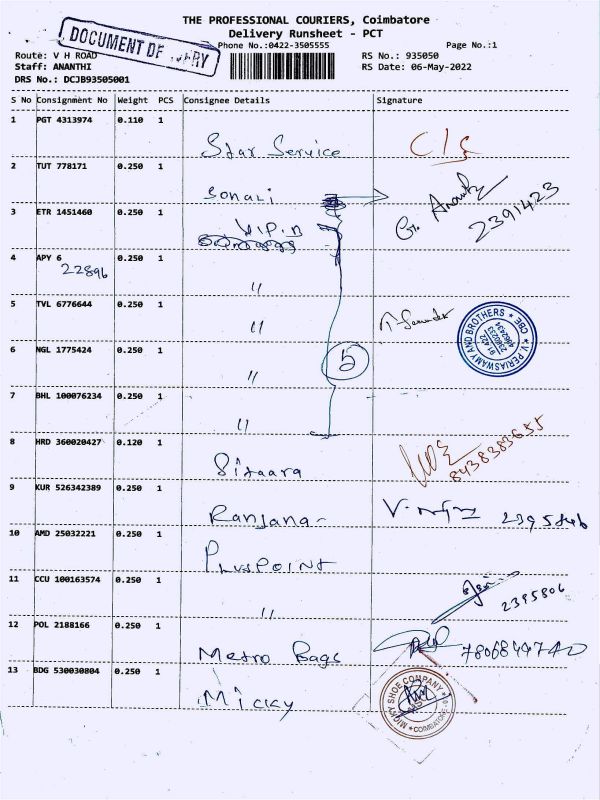 THE PROFESSIONAL COURIERS, Coimbatore
Delivery Runsheet - PCT
DOCUMENT
Phone No.:0422-3505555
Page No.:1
Route: V H ROAD
RS No.: 935050
Staff: ANANTHI
RS Date: 06-May-2022
DRS No.: DCJB93505001
S No Consignment No Weight PCS Consignee Details Signature
1 PGT 4313974 0.110 1 Star Service
2 TUT 778171 0.250 1 Sonali
3 ETR 1451460 0.250 1 V.I.P.N
2391423
4 APY 6 0.250 1 "
22896
5 TVL 6776644 0.250 1 "
V. PERIASWAMY AND BROTHERS * CBE *
6 NGL 1775424 0.250 1 "
5
7 BHL 100076234 0.250 1 "
8 HRD 360020427 0.120 1 Sitaara
8438383655
9 KUR 526342389 0.250 1 Ranjana
10 AMD 25032221 0.250 1 PLUSPOINT
11 CCU 100163574 0.250 1 "
2395806
12 POL 2188166 0.250 1 Metro Bags
13 BDG 530030804 0.250 1 Micky
MICKY SHOE COMPANY
COIMBATORE